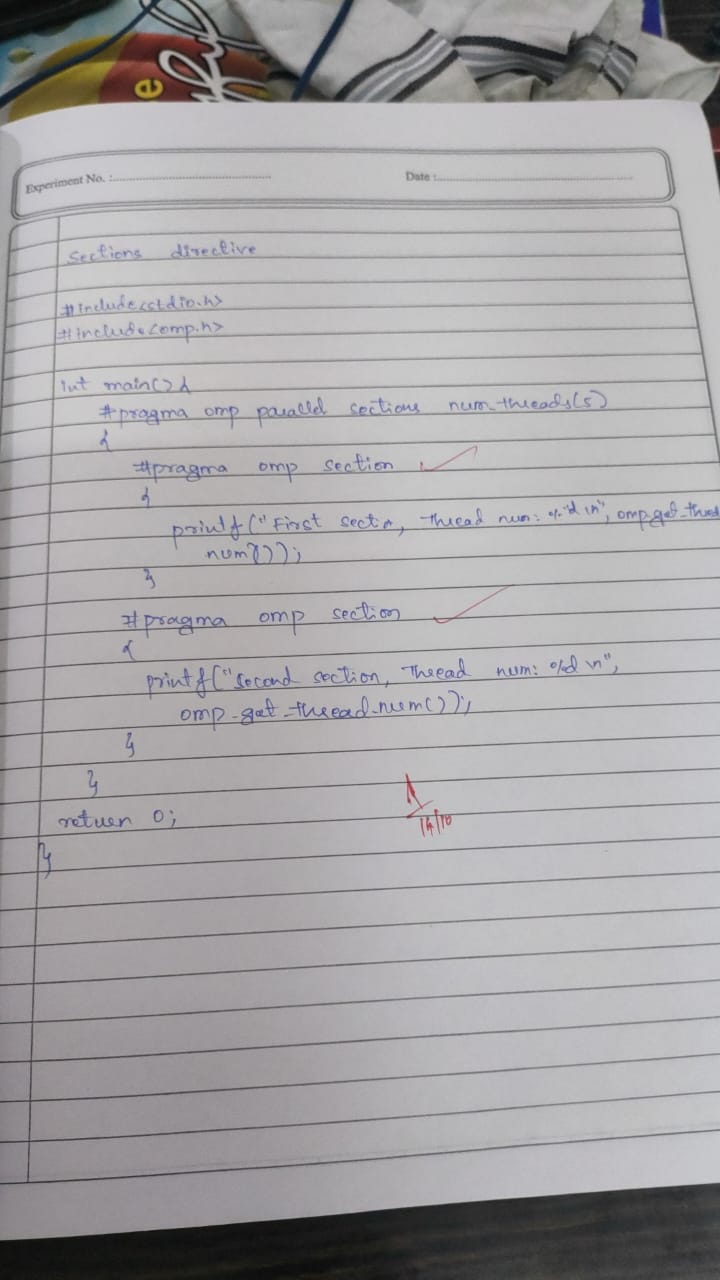 e
Experiment No. :
Date :
Sections directive
#include<stdio.h>
#include<omp.h>
int main() {
#pragma omp parallel sections num_threads(5)
{
#pragma omp section
{
printf("First sectn, Thread num: %d \n", omp_get_thread
num());
}
#pragma omp section
{
printf("Second section, Thread num: %d \n",
omp_get_thread_num());
}
}
return 0;
}